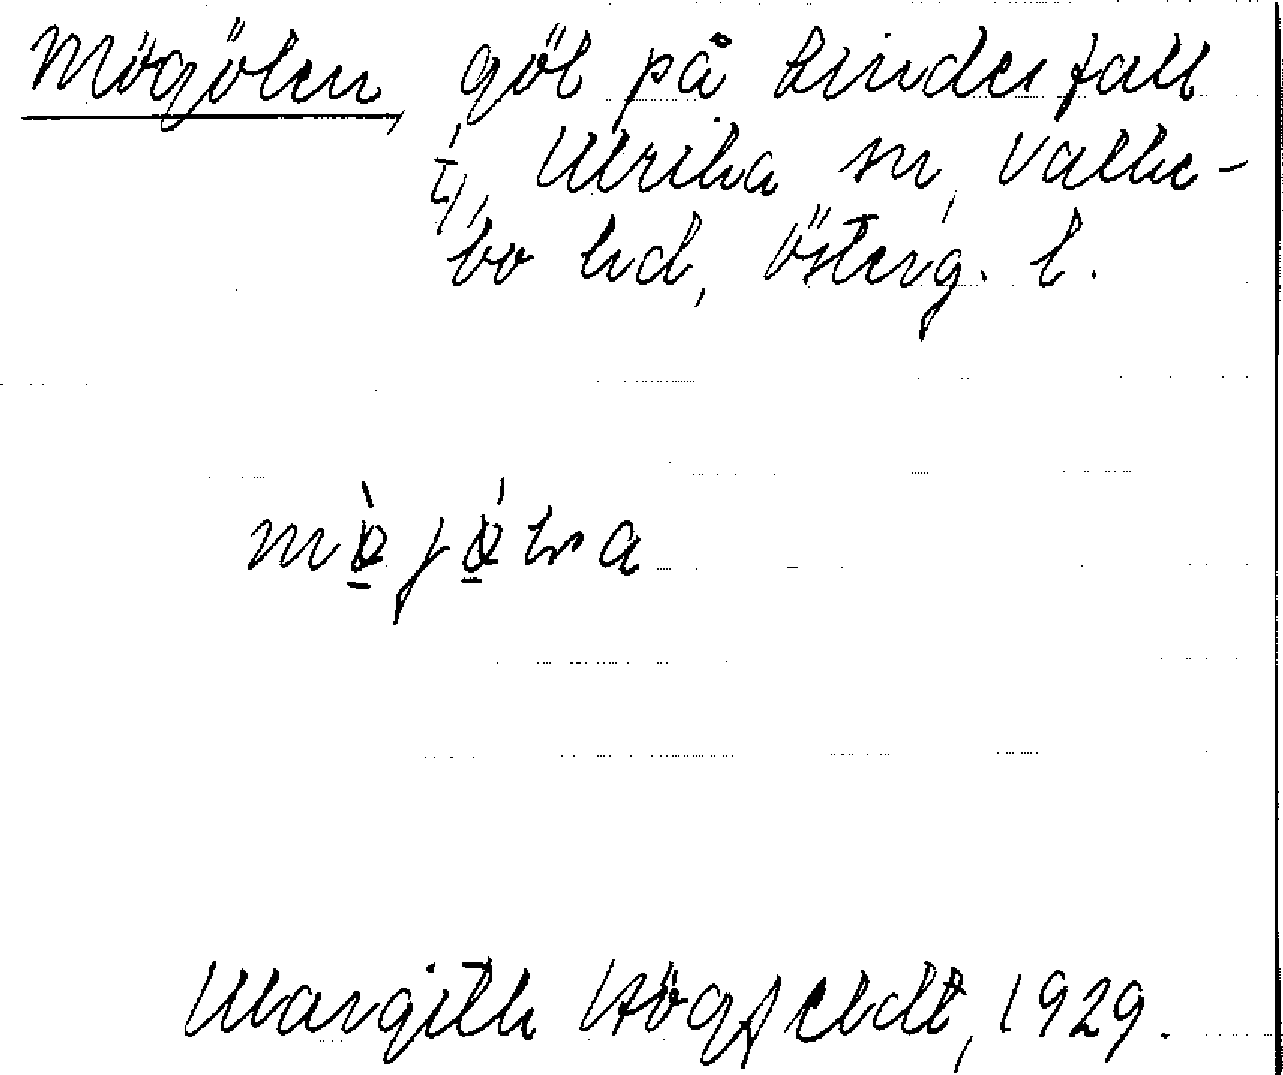 Mögölen, göl på Linderfall
Ty, Ulrika sn, Valke-
bo hd, Österg. l.
Margith Högfeldt, 1929.